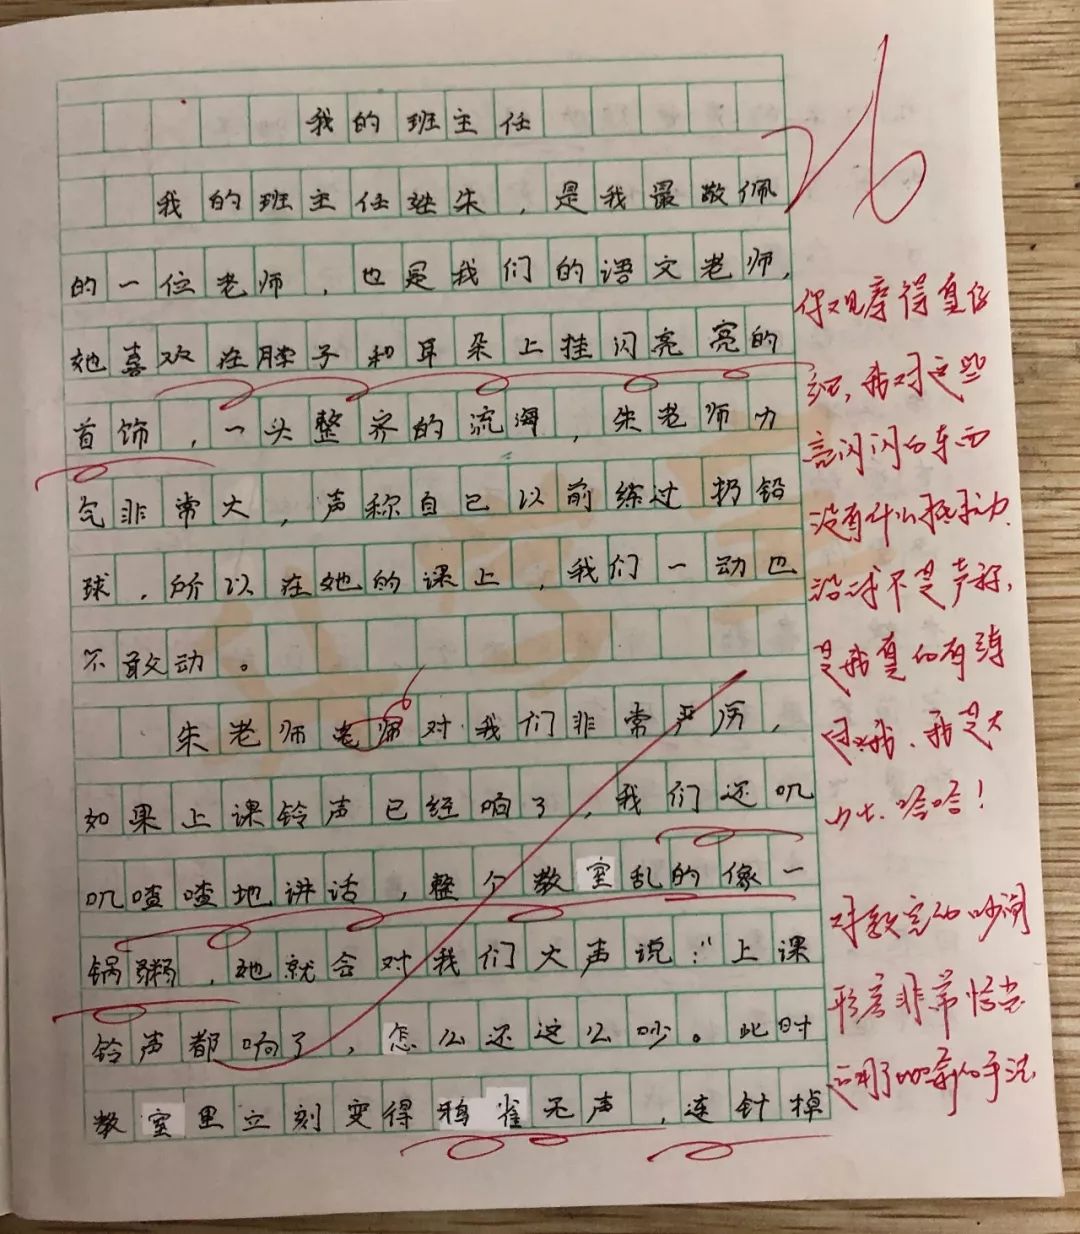 我的班主任
26
我的班主任姓朱，是我最敬佩
的一位老师，也是我们的语文老师，
她喜欢在脖子和耳朵上挂闪亮亮的
首饰，一头整齐的流海，朱老师力
气非常大，声称自己以前练过扔铅
球，所以在她的课上，我们一动也
不敢动。
朱老师老师对我们非常严厉，
如果上课铃声已经响了，我们还叽
叽喳喳地讲话，整个教室乱的像一
锅粥，她就会对我们大声说："上课
铃声都响了，怎么还这么吵。此时
教室里立刻变得鸦雀无声，连针掉
你观摩得真仔
细，我对这些
亮闪闪的东西
没有什么抵抗力，
铅球不是声称，
是我真的有练
过哦，我是大
力士，哈哈！
对教室的吵闹
形容非常恰当
运用了比喻的手法